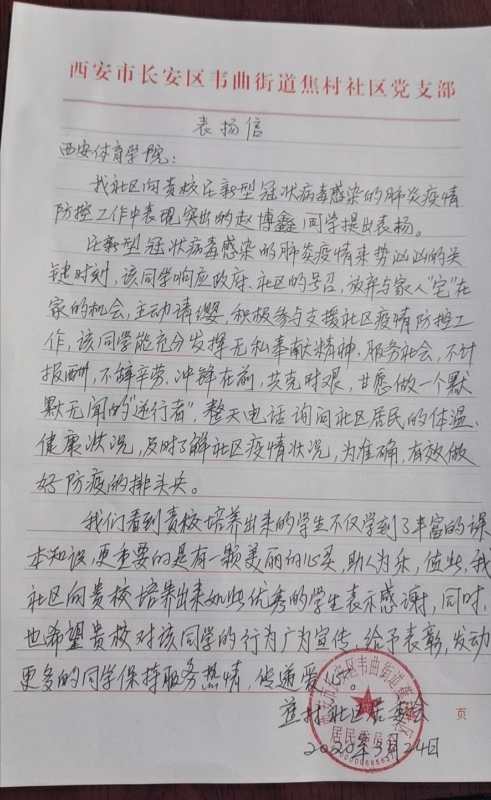 西安市长安区韦曲街道焦村社区党支部
表扬信
西安体育学院：
我社区向贵校在新型冠状病毒感染的肺炎疫情
防控工作中表现突出的赵博鑫同学提出表扬。
在新型冠状病毒感染的肺炎疫情来势汹汹的关
键时刻，该同学响应政府、社区的号召，放弃与家人“宅”在
家的机会，主动请缨，积极参与支援社区疫情防控工
作，该同学能充分发挥无私奉献精神，服务社会，不计
报酬，不辞辛劳，冲锋在前，共克时艰，甘愿做一个默
默无闻的“逆行者”，整天电话询问社区居民的体温、
健康状况，及时了解社区疫情状况，为准确、有效做
好防疫的排头兵。
我们看到贵校培养出来的学生不仅学到了丰富的课
本知识，更重要的是有一颗美丽的心灵，助人为乐，值此，我
社区向贵校培养出来如此优秀的学生表示感谢，同时，
也希望贵校对该同学的行为广为宣传，给予表彰，发动
更多的同学保持服务热情，传递爱心。
焦村社区居委会
页
2020年3月24日
居民委员会